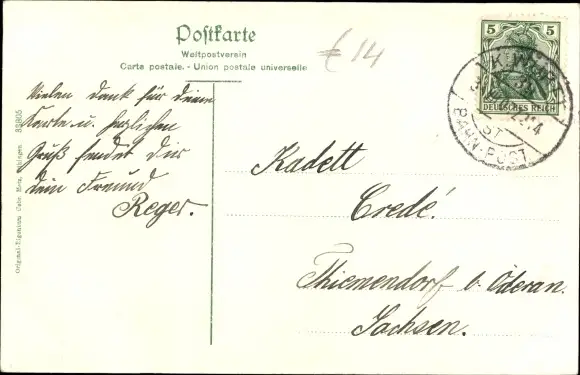 Postkarte
Weltpostverein
Carte postale. - Union postale universelle
€14
5 5
DEUTSCHES REICH
BAHN-POST
Vielen Dank für deine
Karte u. herzlichen
Gruß sendet Dir
dein Freund
Reger.
Kadett
Credé.
Thiemendorf b. Oederan.
Sachsen.
Original-Eigentum Gebr. Metz, Tübingen.